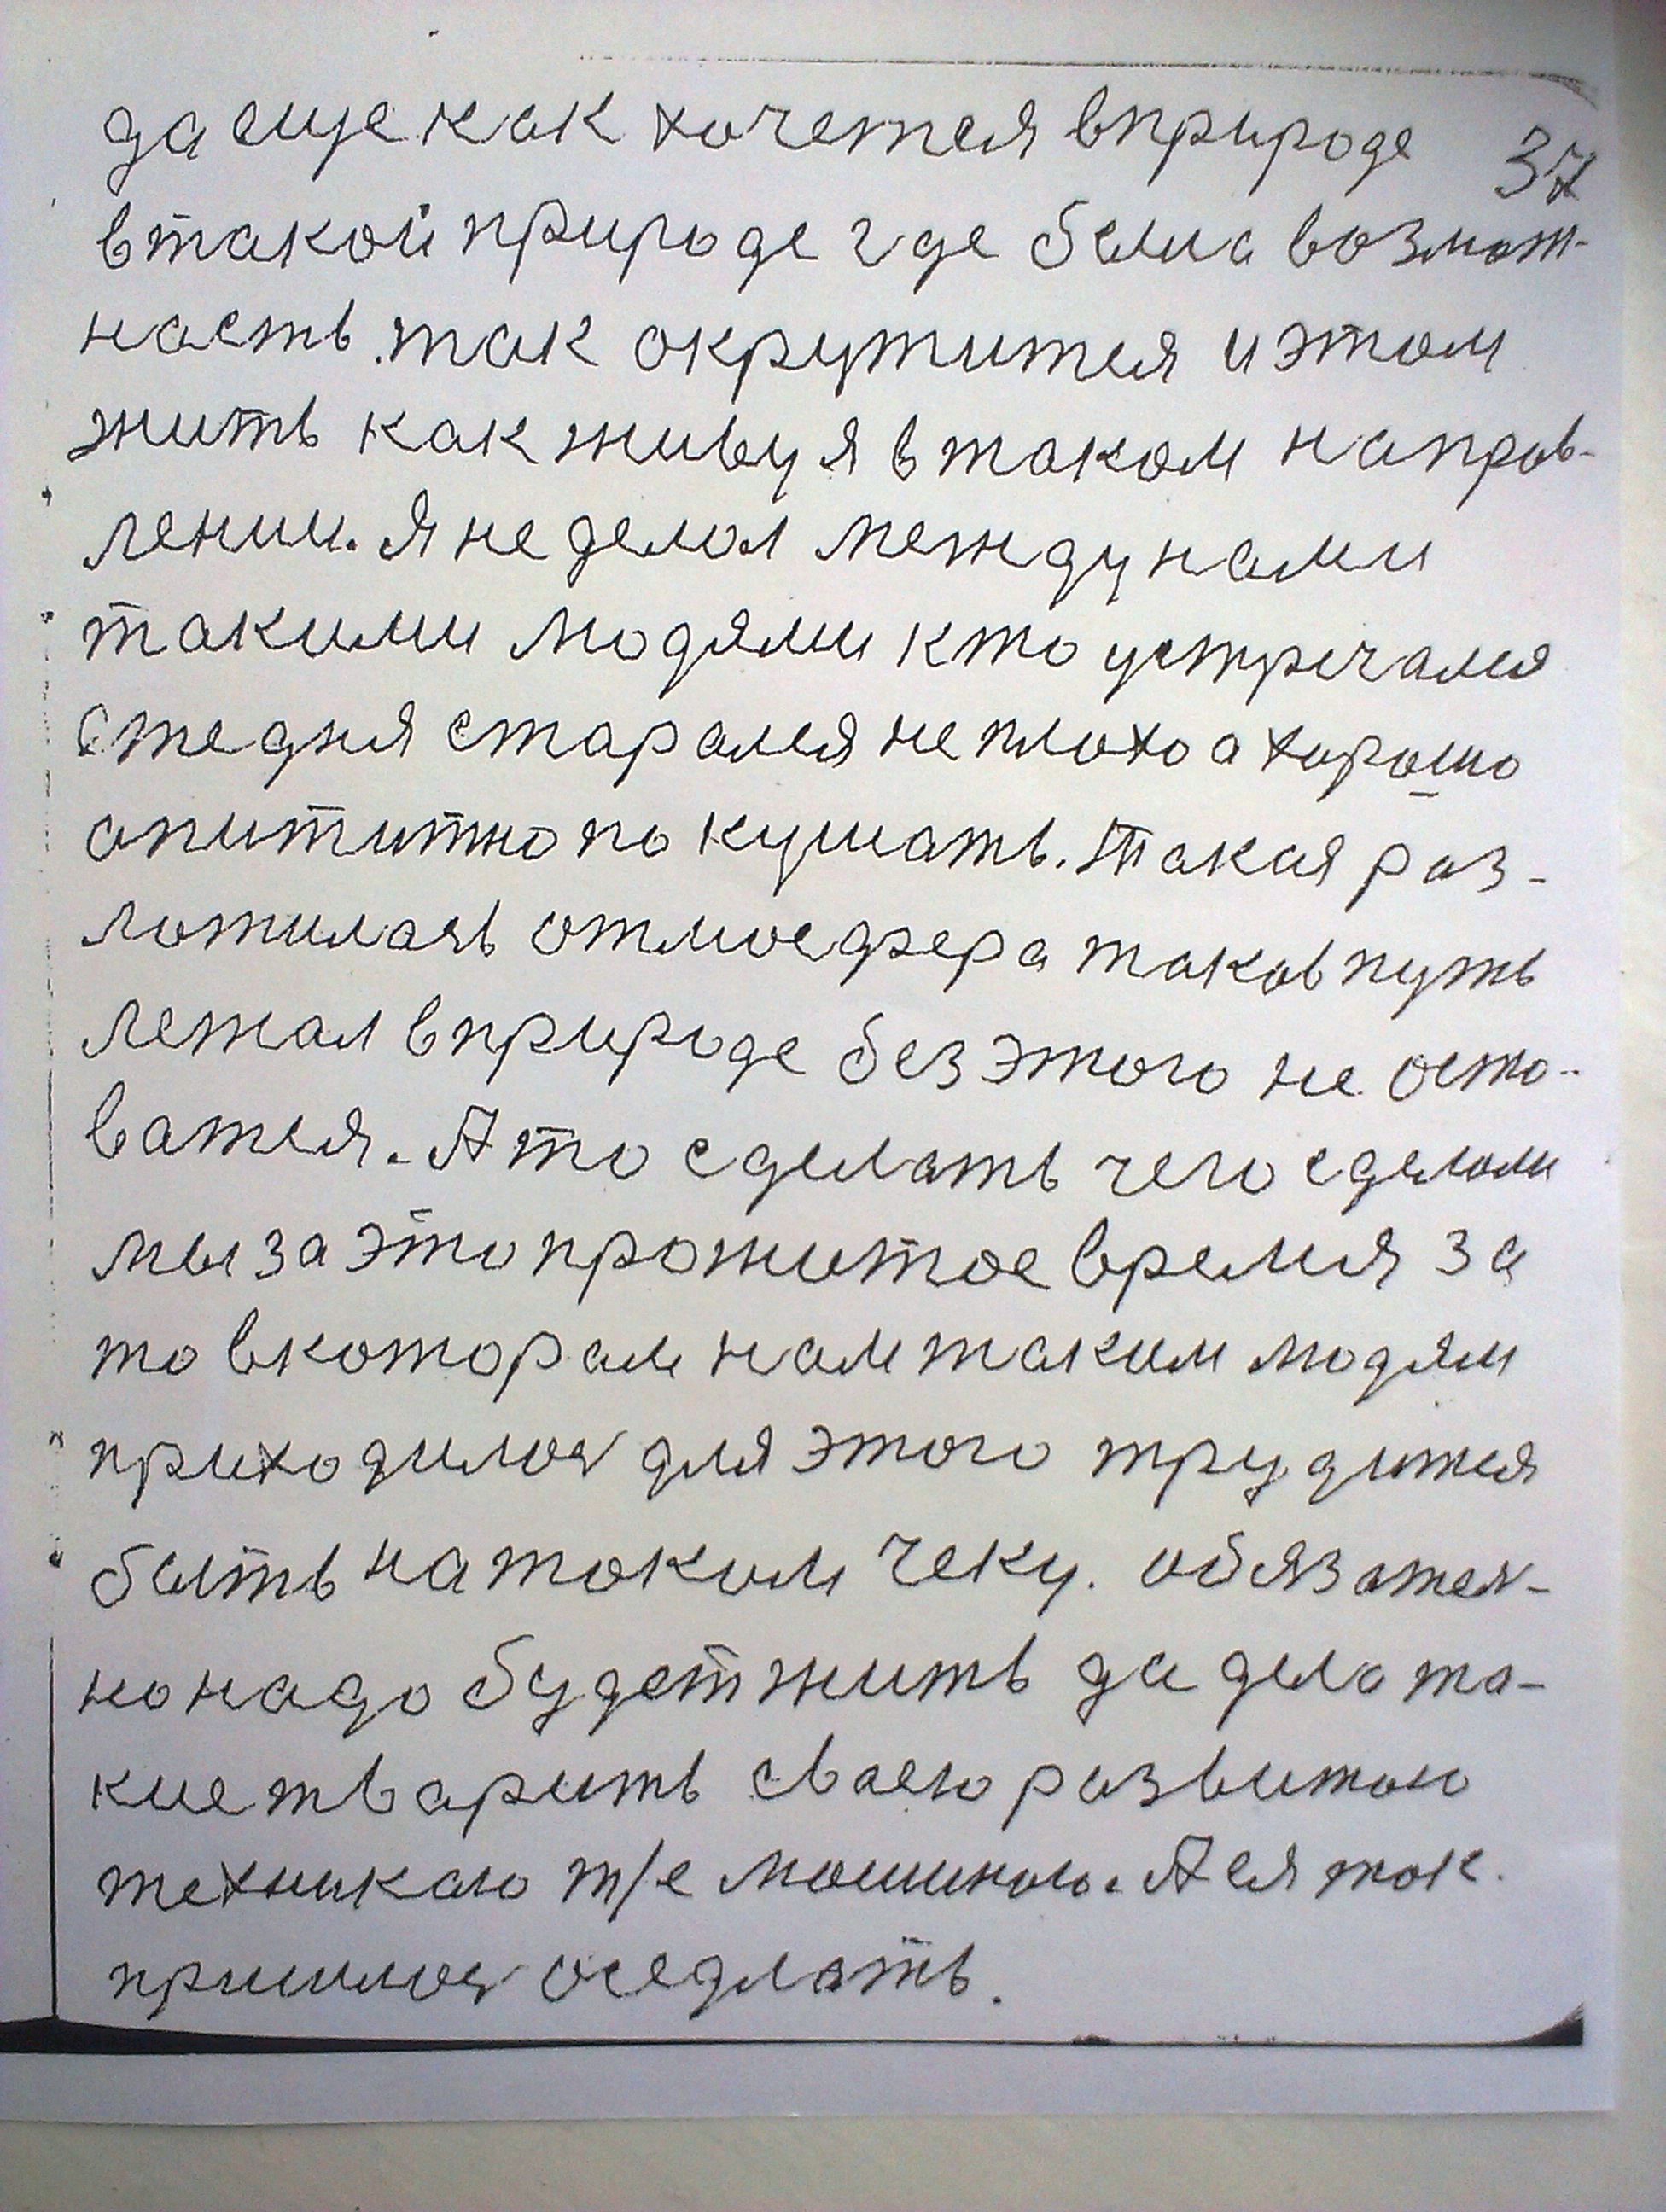 да еще как хочется в природе 37
в такой природе где была возмож-
насть. так окружится и этом
жить как живу я в таком направ-
лении. Я не делал между нами
такими людями кто устричался
стедня старался не плохо а хорошо
апититно покушать. Такая раз-
ложилась отмосфера таков путь
лежал в природе без этого не оста-
ватся. А то сделать чего сделали
мы за это прожитое время за
то в котором нам таким людям
приходилос для этого трудится
быть на таким чеку. обязател-
но надо будет жить да дела та-
кие тварить сваею развитою
техникаю т/е машиною. А ея так.
пришлос оседлать.